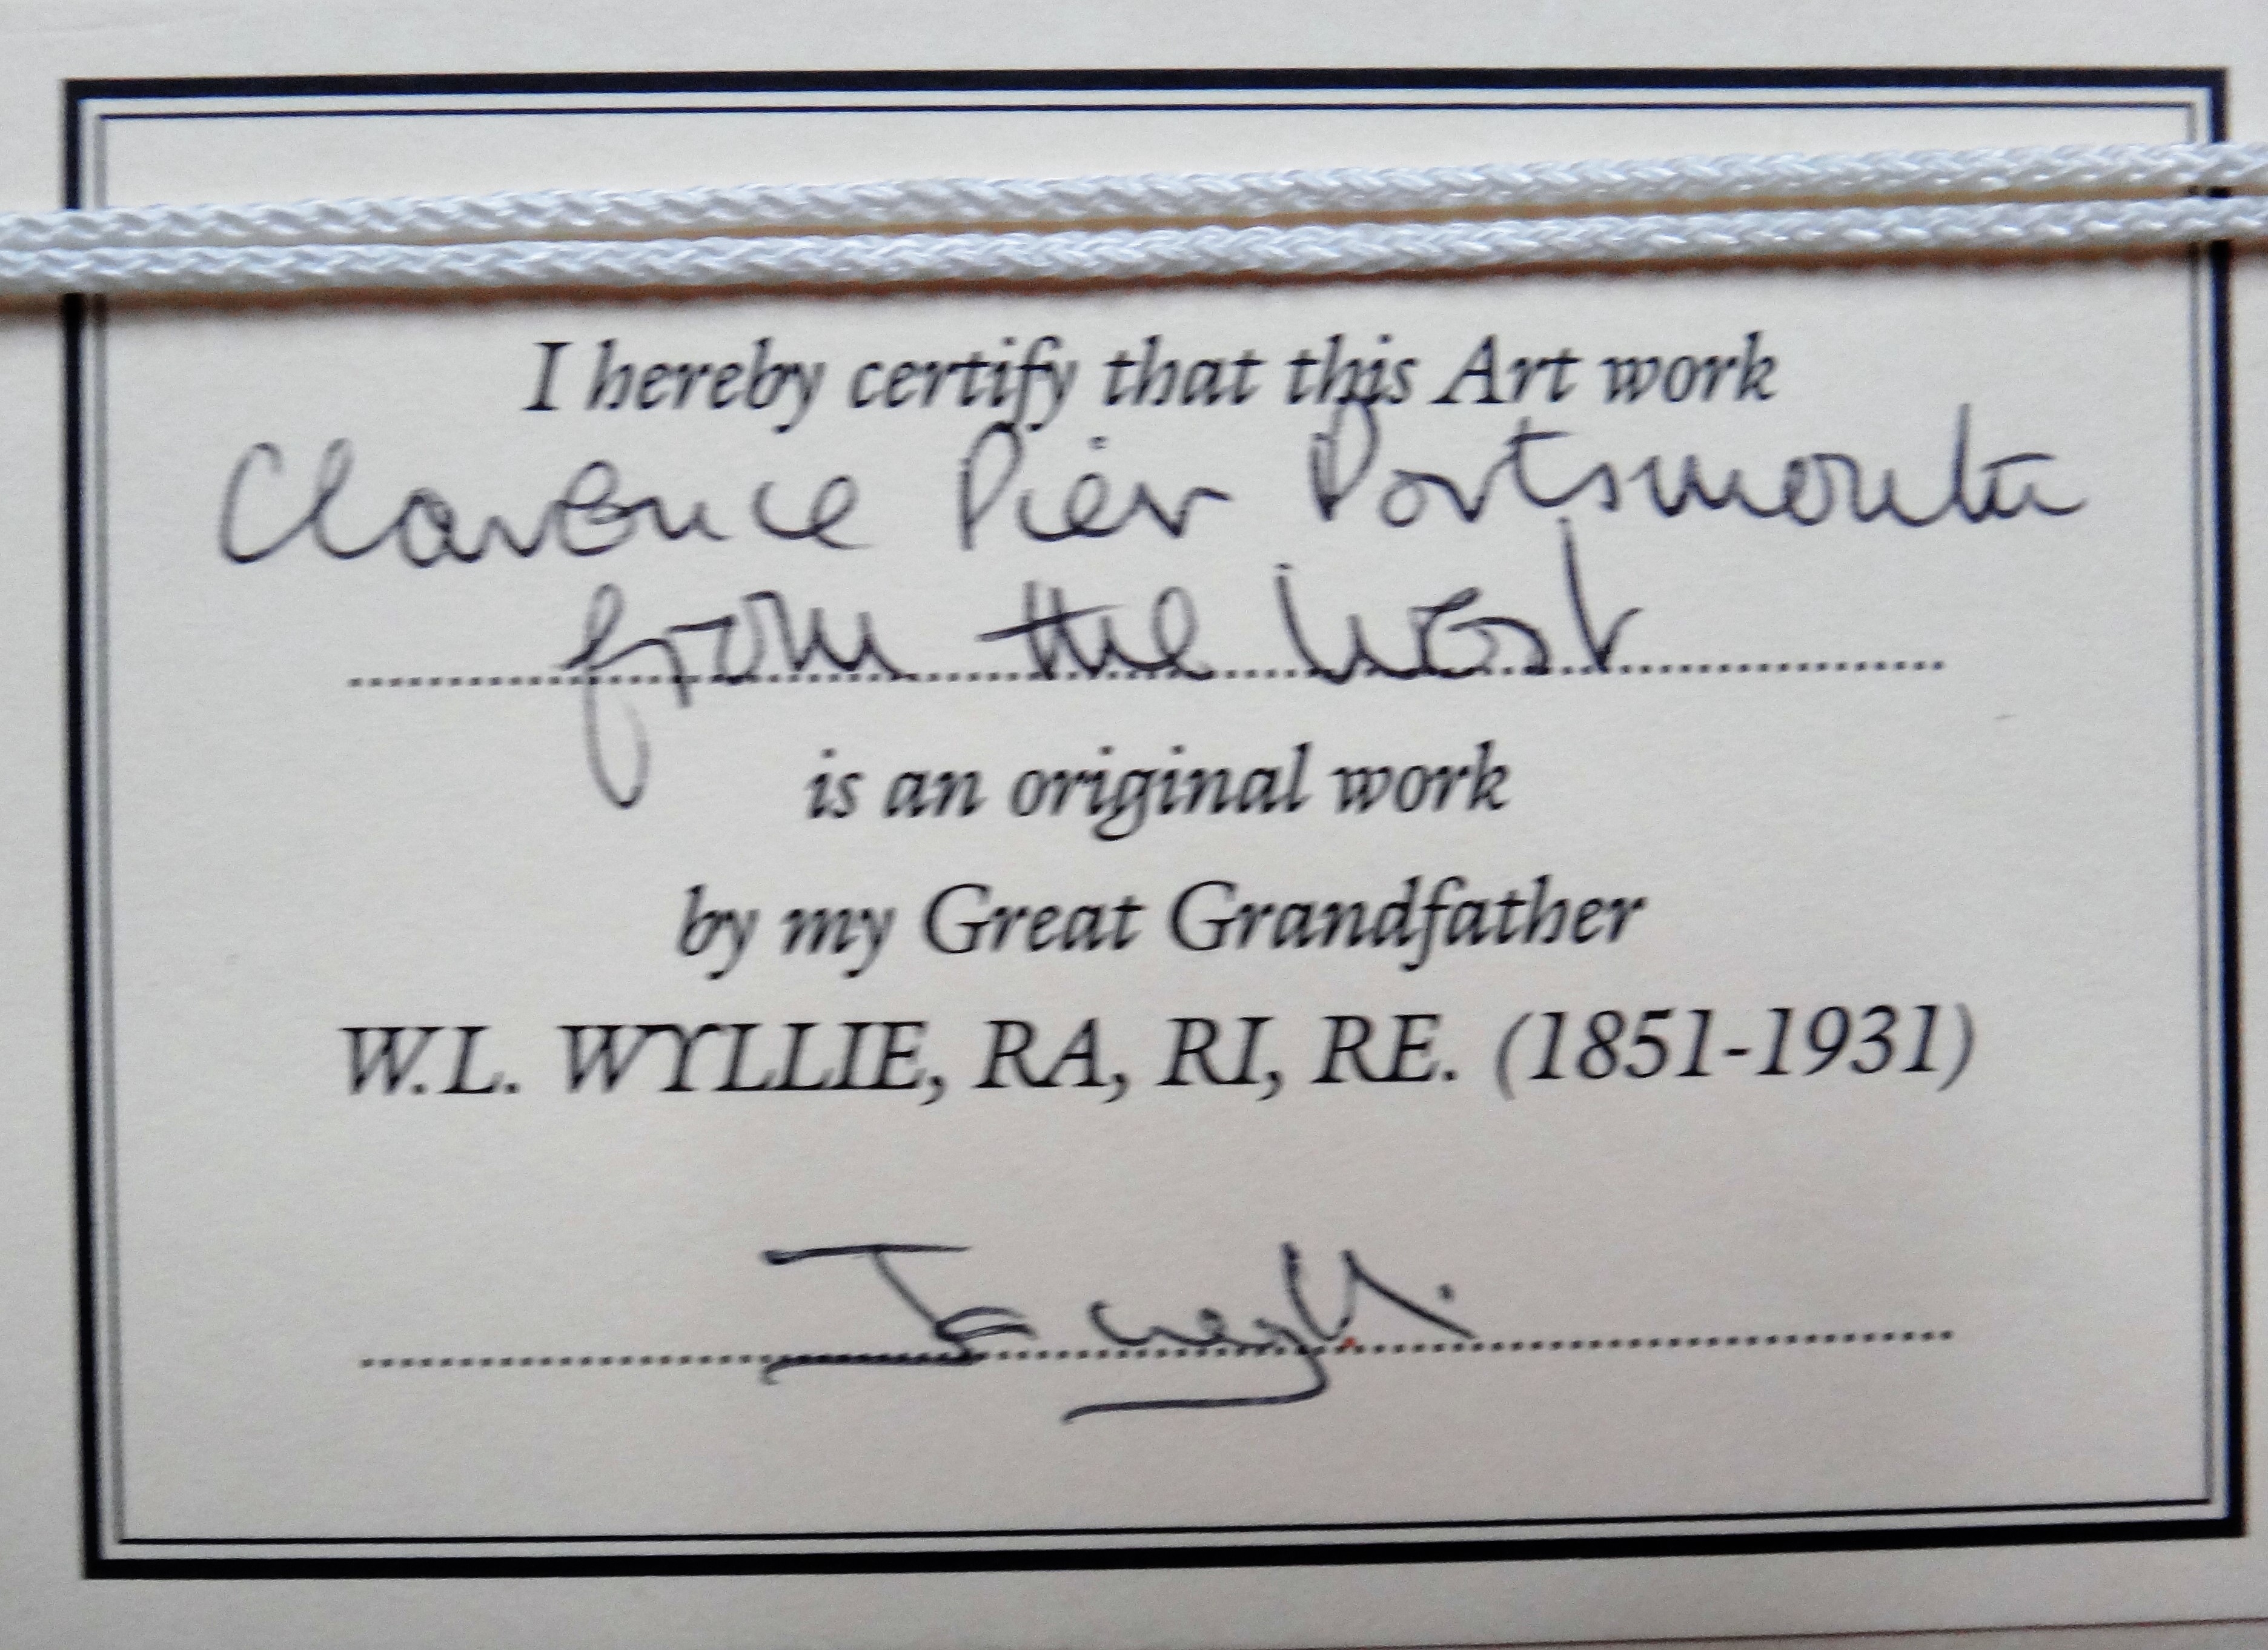 I hereby certify that this Art work
Clarence Pier Portsmouth
from the West
is an original work
by my Great Grandfather
W.L. WYLLIE, RA, RI, RE. (1851-1931)